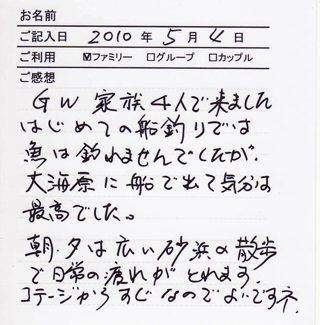 お名前
ご記入日 2010年5月4日
ご利用 ☑ファミリー □グループ □カップル
ご感想
GW 家族4人で来ました
はじめての船釣りでは
魚は釣れませんでしたが、
大海原に船で出て気分は
最高でした。
朝・夕は広い砂浜の散歩
で日常の疲れがとれます。
コテージからすぐなのでよいですネ.